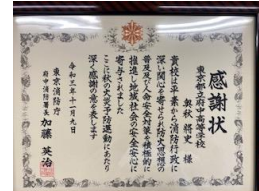 感謝状
東京都立府中高等学校
奥秋將史 様
貴校は平素から消防行政に
深い関心を寄せられ防火思想の
普及及び人命安全対策を積極的に
推進し地域社会の安全安心に
寄与されました
ここに秋の火災予防運動にあたり
深く感謝の意を表します
令和三年十一月九日
東京消防庁
府中消防署長 加藤英治